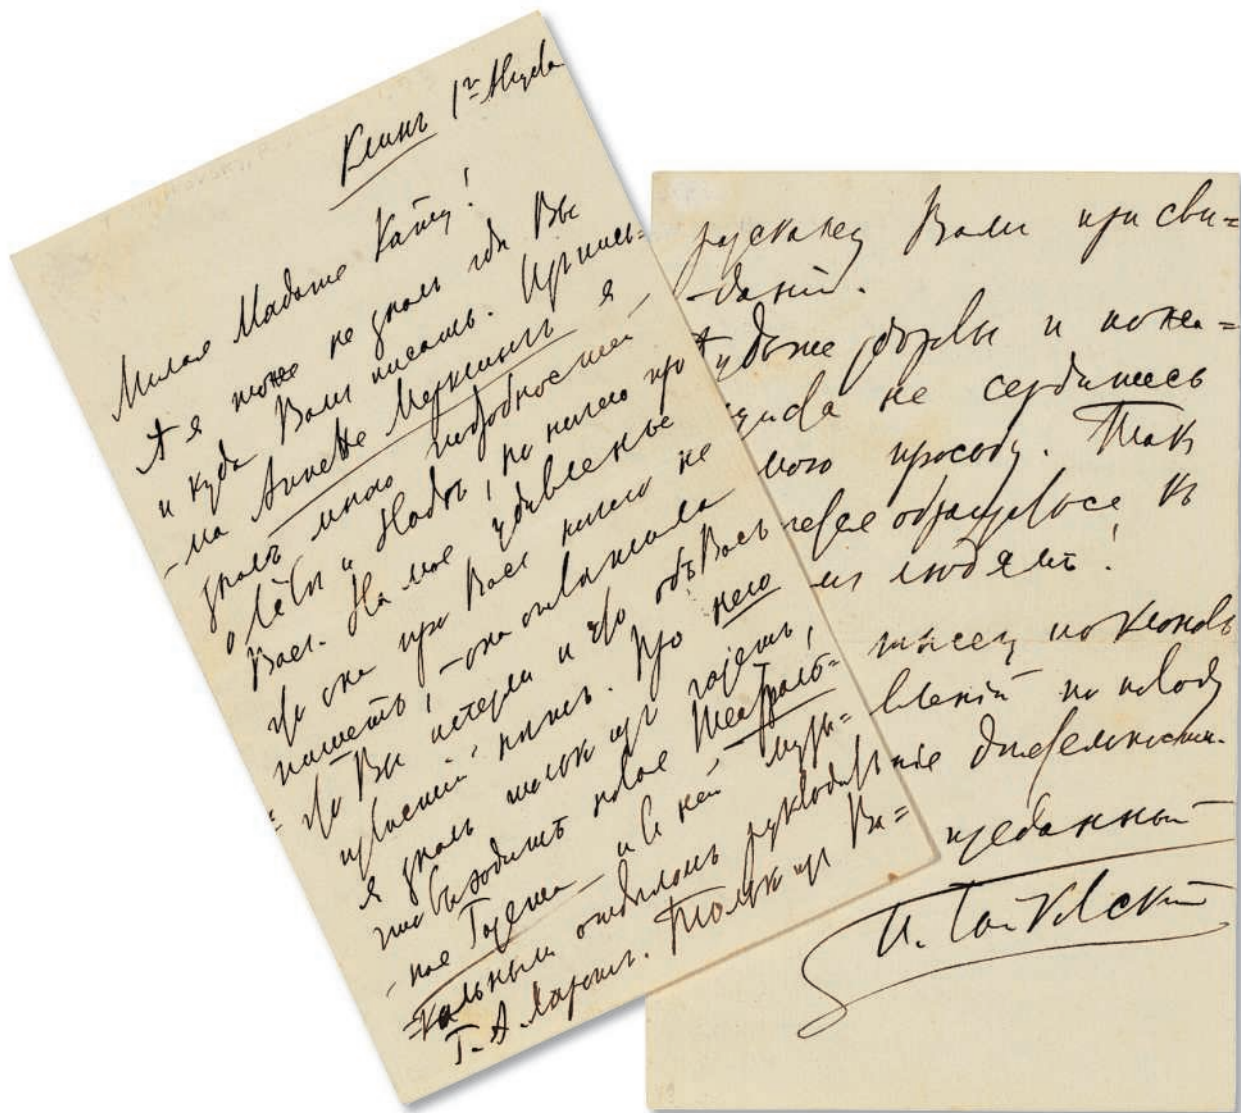 Клинъ 1го Августа
Милая Madame Кашу!
А я тоже не зналъ гдѣ Вы
и куда Вамъ писать. Изъ пись=
=ма Аннеtte Мерклингъ я
узналъ много подробностей
о Лёвѣ и Надѣ, но ничего про
Васъ. На мое удивленье
что она про Васъ ничего не
пишетъ, – она отвѣчала
= что Вы исчезли и что объ Васъ
извѣстій нѣтъ. Про него
я узналъ только изъ газетъ,
что выходитъ новая Театраль=
=ная Газета – и въ ней музы=
=кальнымъ отдѣломъ руководитъ
Г. А. Ларошъ. Только изъ Ва=
разскажу Вамъ при сви=
=даніи.
Будьте здоровы и пожа=
не сердитесь
мою просьбу. Такъ
обращаться къ
людямъ!
тысячу поклоновъ
по поводу
преданный
П. Чайковскій